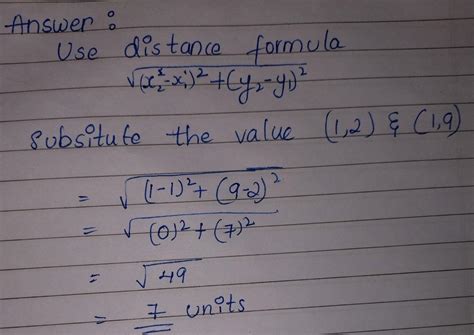 Answer :
Use distance formula
√(x₂²-x₁)² + (y₂-y₁)²
Subsitute the value (1,2) & (1,9)
= √(1-1)² + (9-2)²
= √(0)² + (7)²
= √49
= 7 units